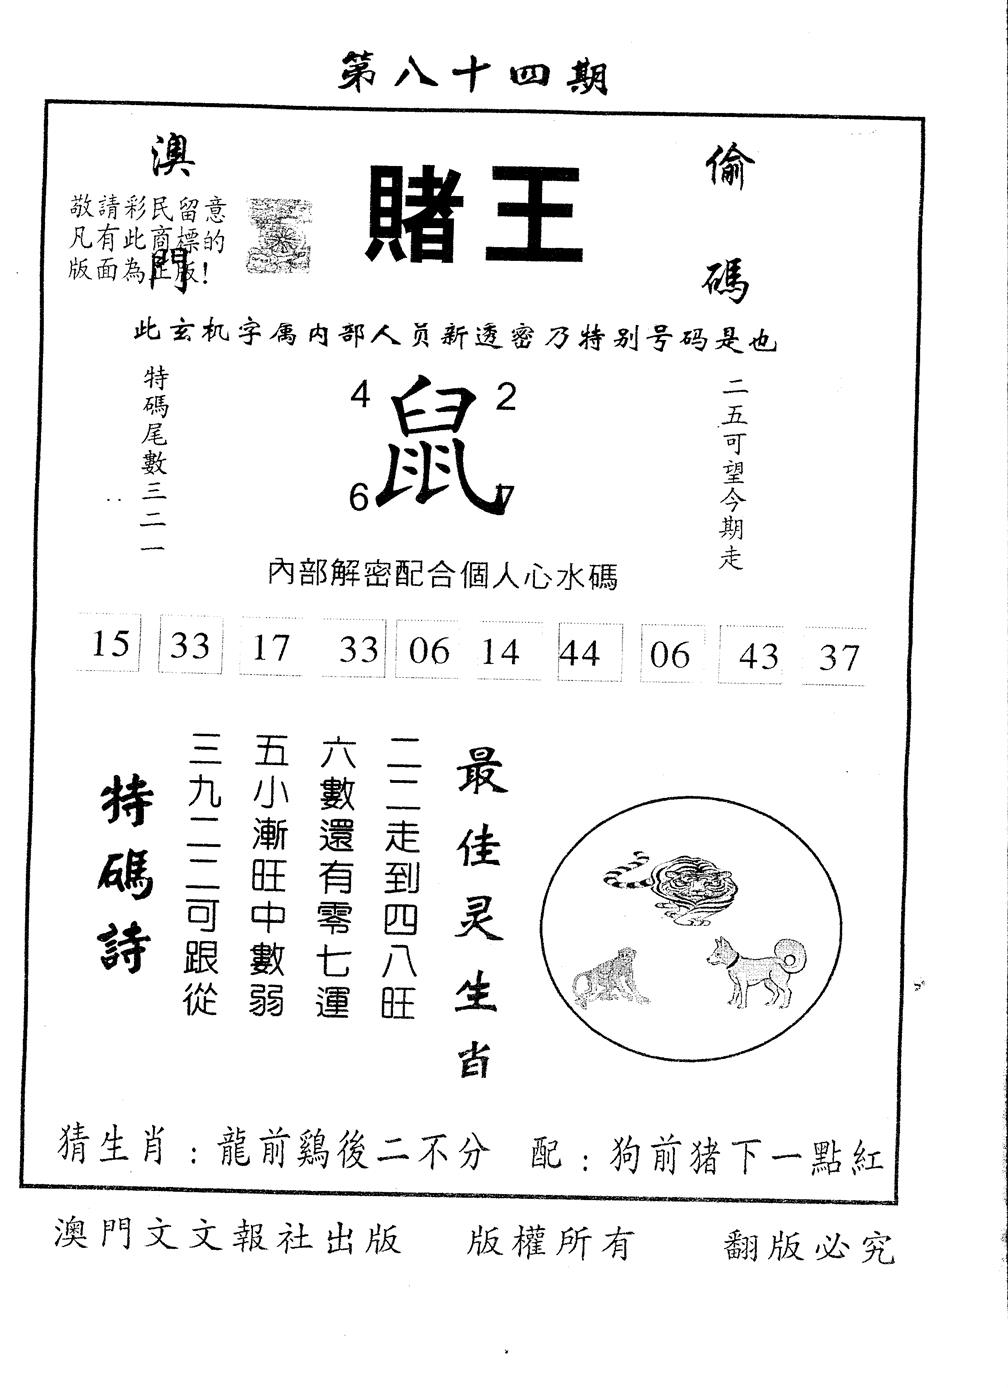 第八十四期
澳門
賭王
偷碼
敬請彩民留意
凡有此商標的
版面為正版！
此玄机字属内部人员新透密乃特别号码是也
特碼尾數三二一
4 2
鼠
6 7
二五可望今期走
內部解密配合個人心水碼
15 33 17 33 06 14 44 06 43 37
最佳灵生肖
二二走到四八旺
六數還有零七運
五小漸旺中數弱
三九二二可跟從
特碼詩
猜生肖：龍前鷄後二不分 配：狗前猪下一點紅
澳門文文報社出版 版權所有 翻版必究